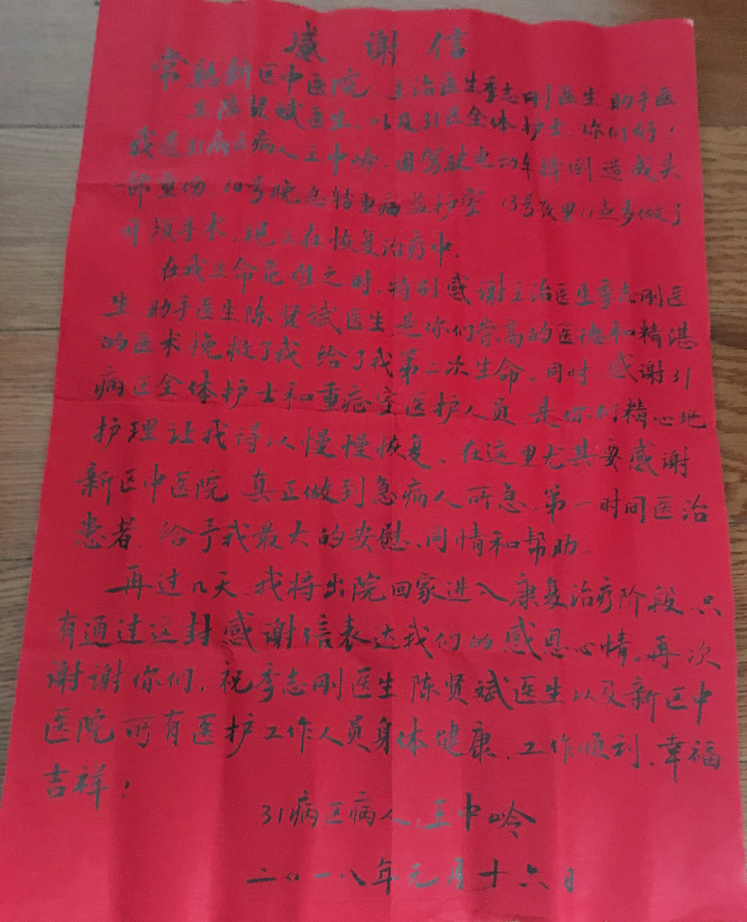 感谢信
常熟新区中医院 主治医生李志刚医生 助手医
生陈贤斌医生、以及31区全体护士、你们好!
我是31病区病人王中呤、因驾驶电动车摔倒造成头
部重伤 10号晚急转重病监护室 13号夜里11点多做了
开颅手术、现正在恢复治疗中.
在我生命危难之时、特别感谢主治医生李志刚医
生 助手医生陈贤斌医生、是你们崇高的医德和精湛
的医术挽救了我 给了我第二次生命、同时、感谢31
病区全体护士和重症室医护人员 是你们精心地
护理让我得以慢慢恢复、在这里尤其要感谢
新区中医院 真正做到急病人所急、第一时间医治
患者、给予我最大的安慰、同情和帮助.
再过几天、我将出院回家进入康复治疗阶段、只
有通过这封感谢信表达我们的感恩心情。再次
谢谢你们、祝李志刚医生 陈贤斌医生以及新区中
医院所有医护工作人员身体健康、工作顺利、幸福
吉祥!
31病区病人、王中呤
二〇一八年元月十六日